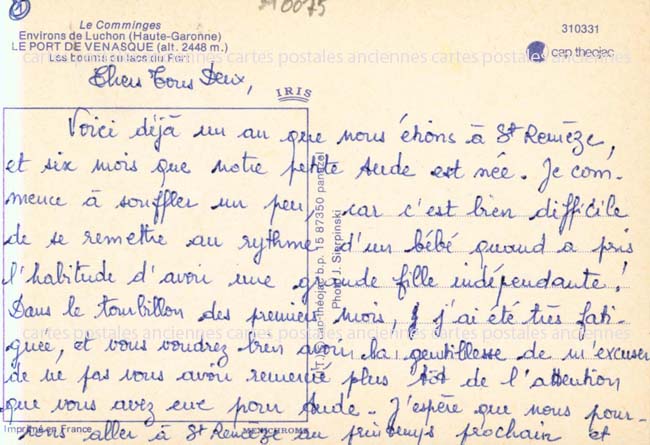 ①
Le Comminges
Environs de Luchon (Haute-Garonne)
LE PORT DE VENASQUE (alt. 2448 m.)
Les boums ou lacs du Port
310331
cap theojac
cartes postales anciennes cartes postales anciennes cartes postales anciennes
Chers Tous Deux,
IRIS
Voici déjà un an que nous étions à St Remèze,
et six mois que notre petite Aude est née. Je com-
mence à souffler un peu, car c'est bien difficile
de se remettre au rythme d'un bébé quand a pris
l'habitude d'avoir une grande fille indépendante!
Dans le tourbillon des premiers mois, j'ai été très fati-
guée, et vous voudrez bien avoir la gentillesse de m'excuser
de ne pas vous avoir remercié plus tôt de l'attention
que vous avez eue pour Aude. J'espère que nous pour-
rons aller à St Remèze au printemps prochain et
cap-théojac b.p. 15 87350 panazol
Photo J. Sierpinski
cartes postales anciennes cartes postales anciennes cartes postales anciennes
Imprimé en France
MEXICHROME